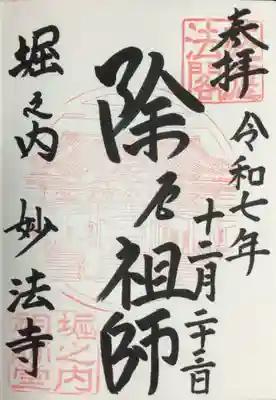 奉拝
令和七年
十二月二十三日
除厄祖師
堀之内 妙法寺
堀之内